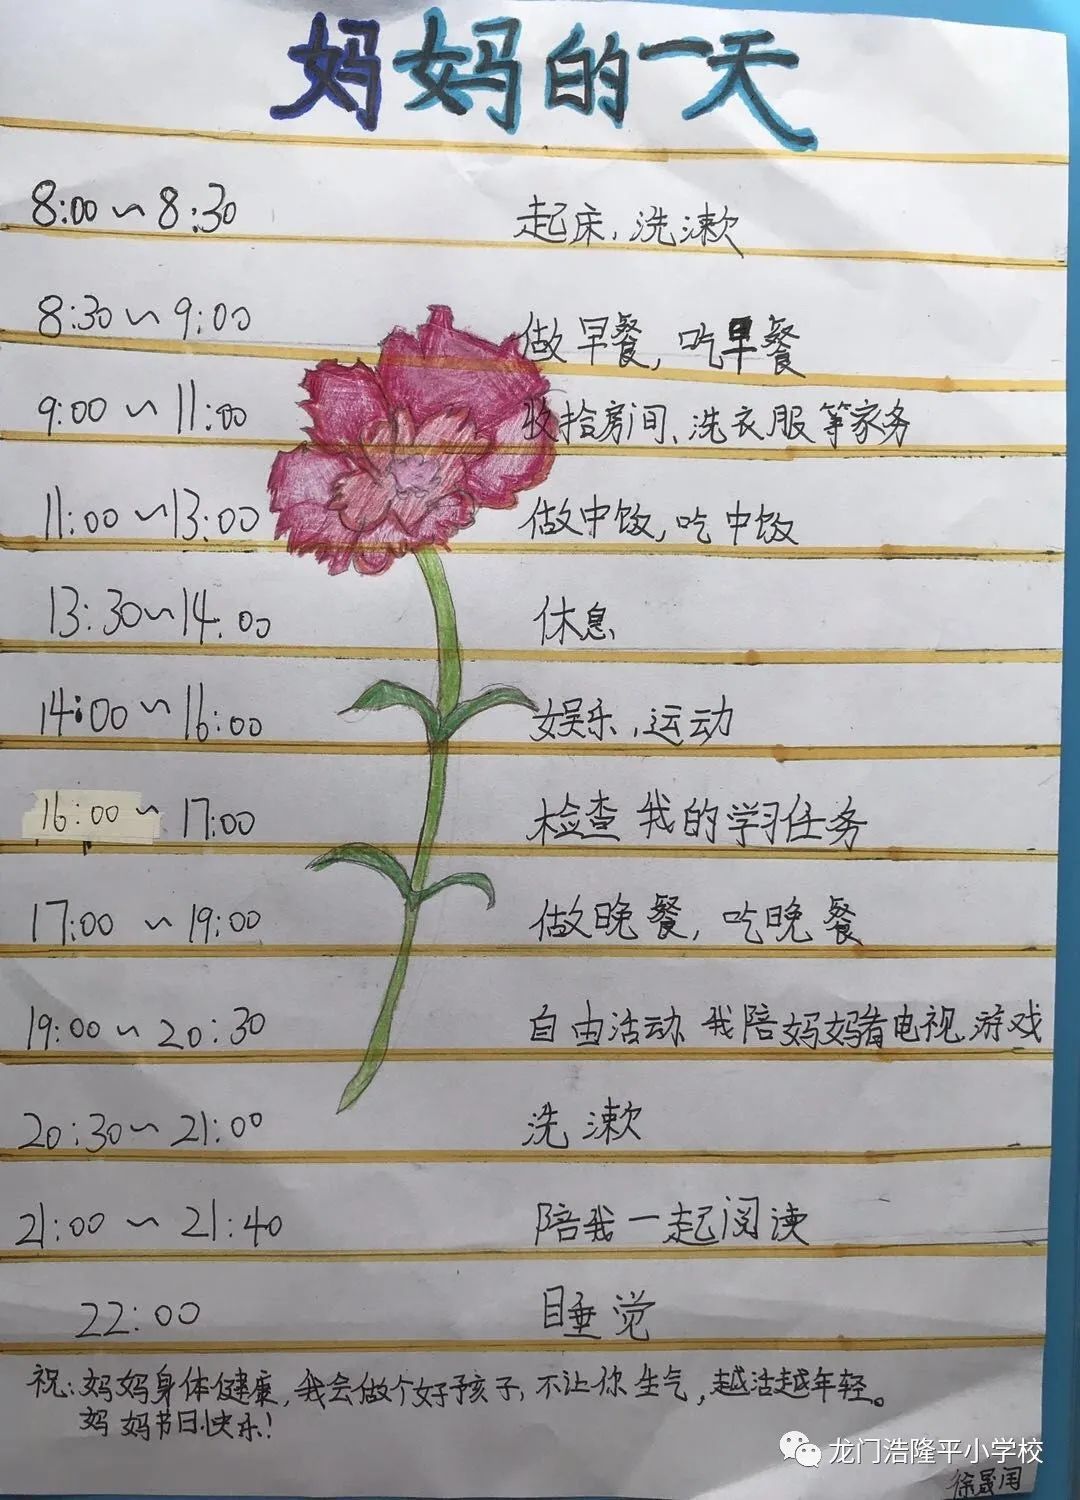 妈妈的一天
8:00~8:30 起床,洗漱
8:30~9:00 做早餐,吃早餐
9:00~11:00 收拾房间、洗衣服等家务
11:00~13:00 做中饭,吃中饭
13:30~14:00 休息
14:00~16:00 娱乐,运动
16:00~17:00 检查我的学习任务
17:00~19:00 做晚餐,吃晚餐
19:00~20:30 自由活动、我陪妈妈看电视、游戏
20:30~21:00 洗漱
21:00~21:40 陪我一起阅读
22:00 睡觉
祝:妈妈身体健康,我会做个好孩子,不让你生气,越活越年轻。
妈妈节日快乐!
龙门浩隆平小学校
徐晟闰